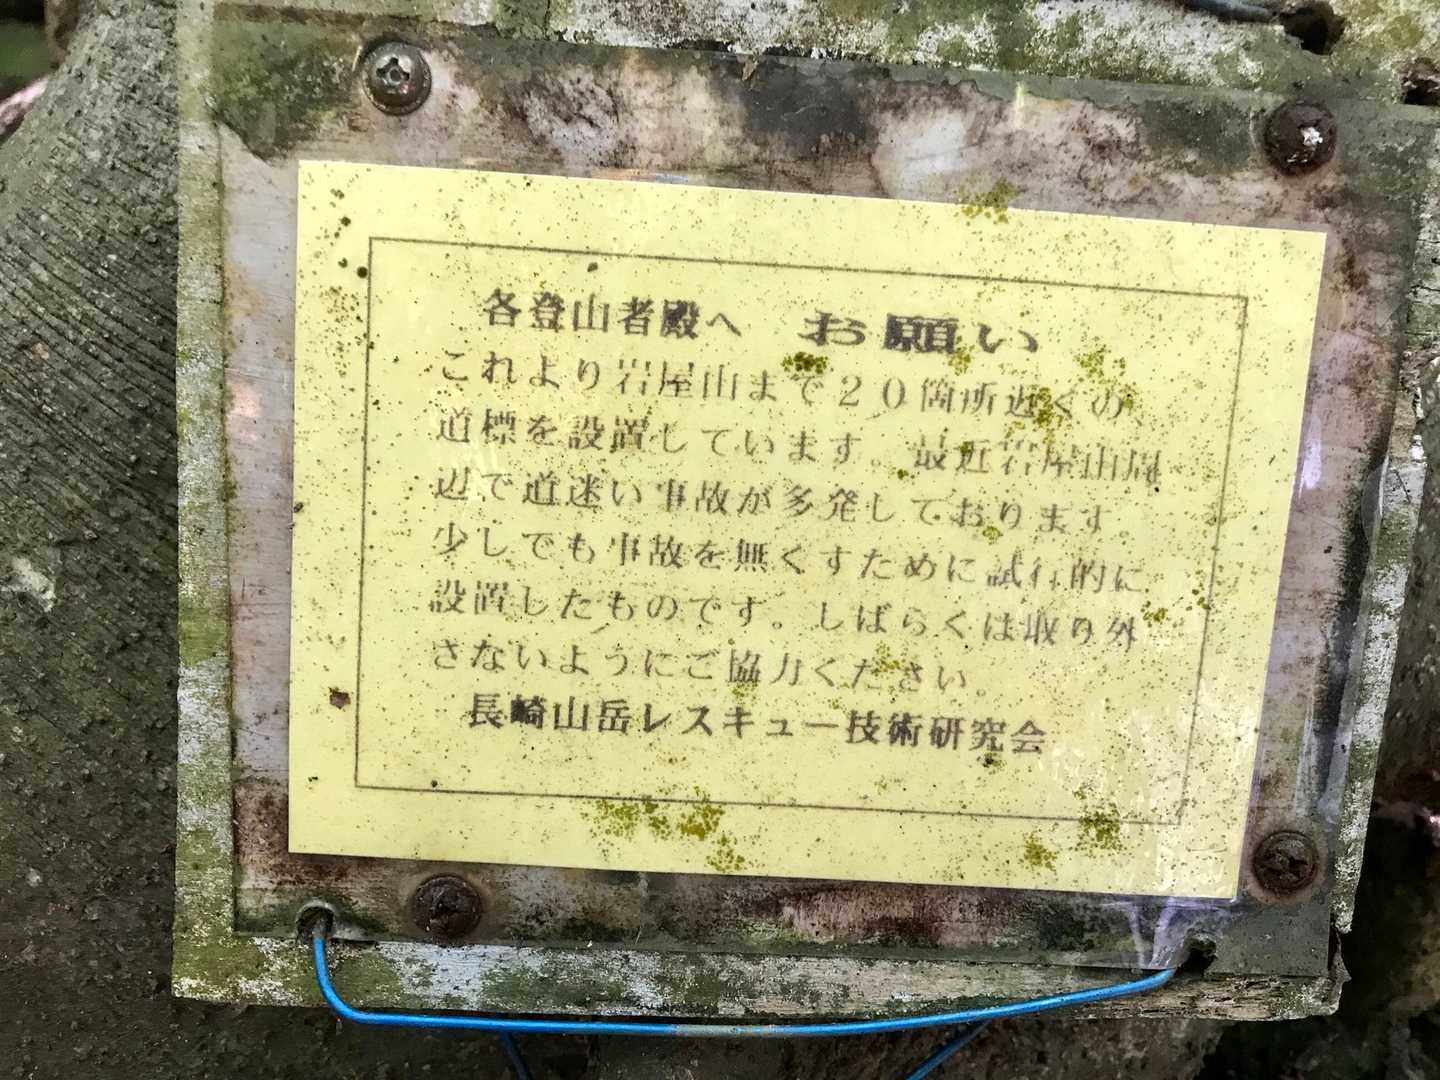 各登山者殿へ　お願い
これより岩屋山まで２０箇所近くの
道標を設置しています。最近岩屋山周
辺で道迷い事故が多発しております。
少しでも事故を無くすために試行的に
設置したものです。しばらくは取り外
さないようにご協力ください。
長崎山岳レスキュー技術研究会